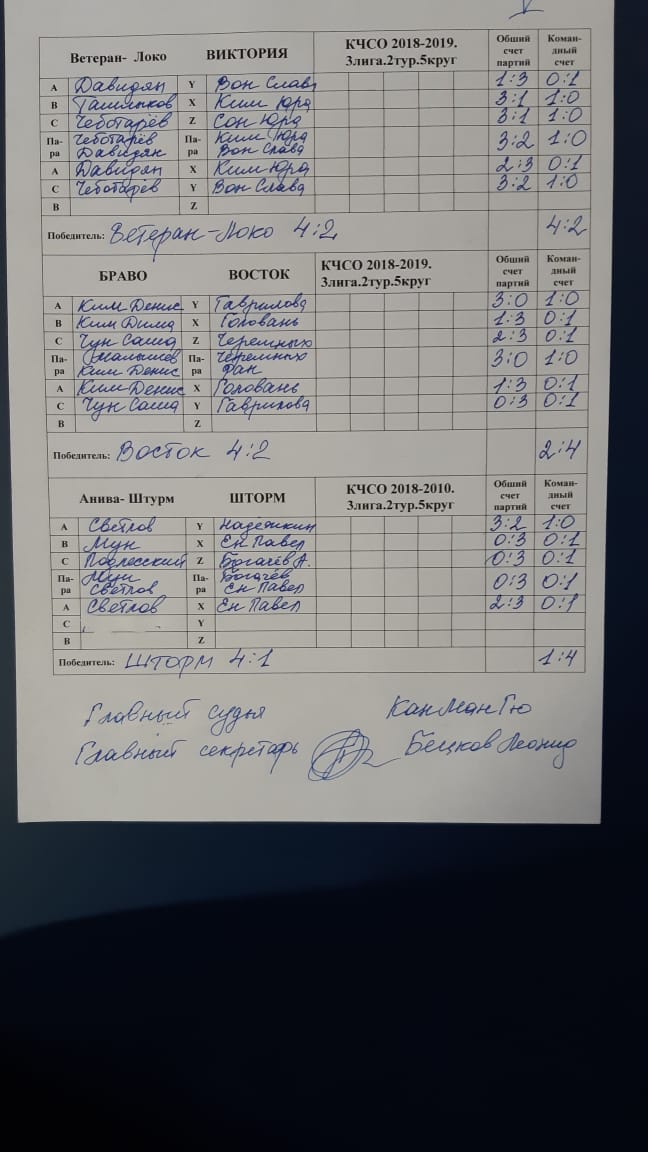 Ветеран- Локо ВИКТОРИЯ КЧСО 2018-2019. 3лига.2тур.5круг Общий счет партий Коман- дный счет
А Давидян Y Вон Слава 1:3 0:1
В Ташлыков X Ким Юра 3:1 1:0
С Чеботарёв Z Сон Юра 3:1 1:0
Па- ра Чеботарёв Давидян Па- ра Ким Юра Вон Слава 3:2 1:0
А Давидян X Ким Юра 2:3 0:1
С Чеботарёв Y Вон Слава 3:2 1:0
В Z
Победитель: Ветеран-Локо 4:2 4:2
БРАВО ВОСТОК КЧСО 2018-2019. 3лига.2тур.5круг Общий счет партий Коман- дный счет
А Ким Денис Y Гаврилова 3:0 1:0
В Ким Дима X Головань 1:3 0:1
С Чун Саша Z Черемных 2:3 0:1
Па- ра Малышев Ким Денис Па- ра Черемных Фан 3:0 1:0
А Ким Денис X Головань 1:3 0:1
С Чун Саша Y Гаврилова 0:3 0:1
В Z
Победитель: Восток 4:2 2:4
Анива- Штурм ШТОРМ КЧСО 2018-2010. 3лига.2тур.5круг Общий счет партий Коман- дный счет
А Светлов Y Надеткин 3:2 1:0
В Мун X Ен Павел 0:3 0:1
С Подлесский Z Богачёв А. 0:3 0:1
Па- ра Мун Светлов Па- ра Богачёв Ен Павел 0:3 0:1
А Светлов X Ен Павел 2:3 0:1
С Y
В Z
Победитель: Шторм 4:1 1:4
Главный судья Кан Ман Гю
Главный секретарь Бецков Леонид